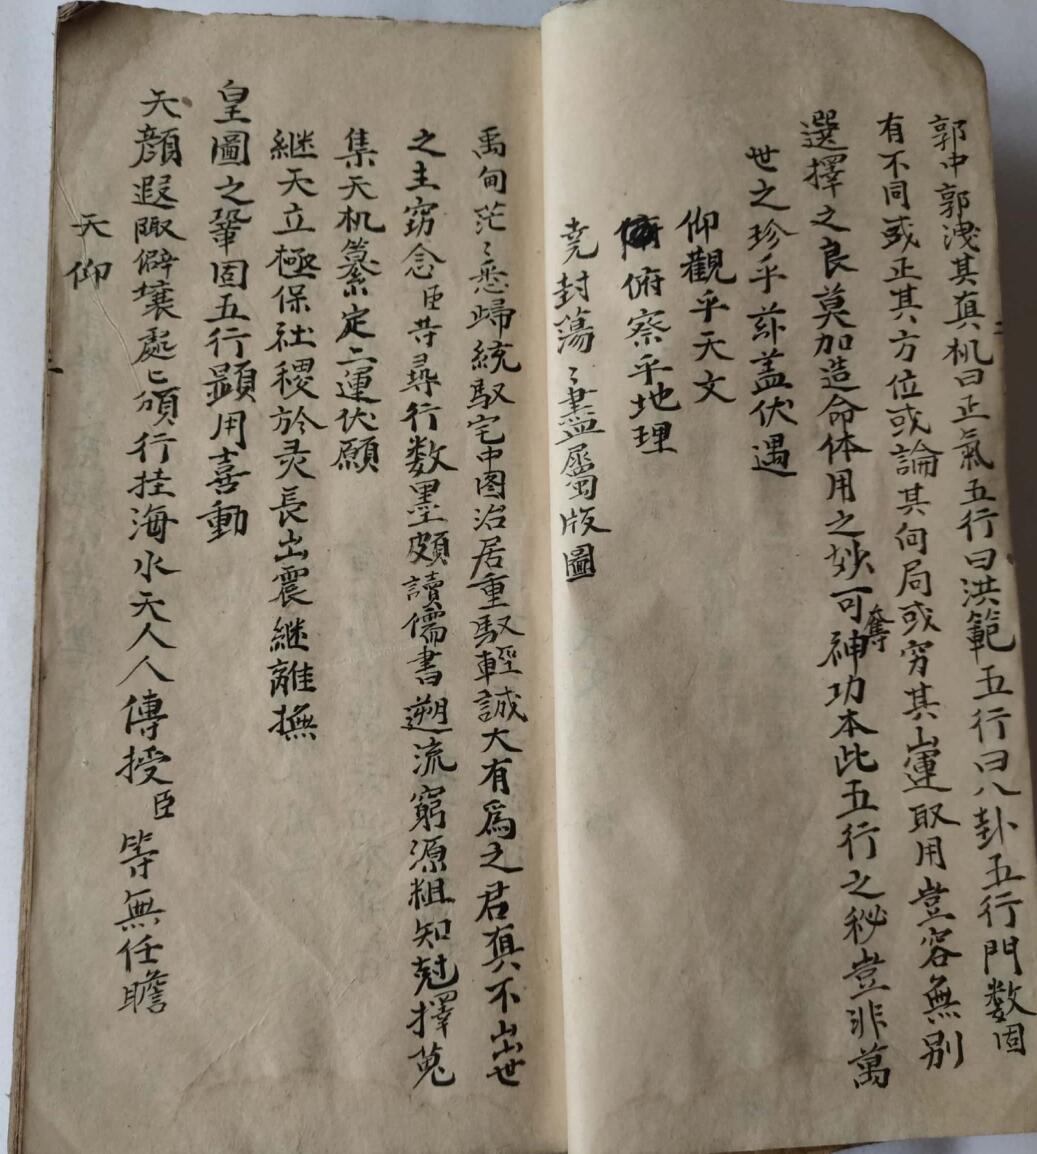 郭中郭洩其真机曰正氣五行曰洪範五行曰八卦五行門数固
有不同或正其方位或論其向局或穷其山運取用豈容無別
選擇之良莫加造命体用之妙可奪神功本此五行之秘豈非萬
世之珍乎兹盖伏遇
仰觀乎天文
俯察乎地理
堯封蕩〻盡屬版圖
禹甸茫〻悉歸統馭宅中图治居重馭輕誠大有為之君真不出世
之主窃念臣等尋行数墨頗讀儒書遡流窮源粗知尅擇蒐
集天机纂定二運伏願
継天立極保社稷於灵長出震継離撫
皇圖之鞏固五行顕用喜動
天顔遐陬僻壤處〻頒行挂海水天人人傳授臣等無任瞻
天仰